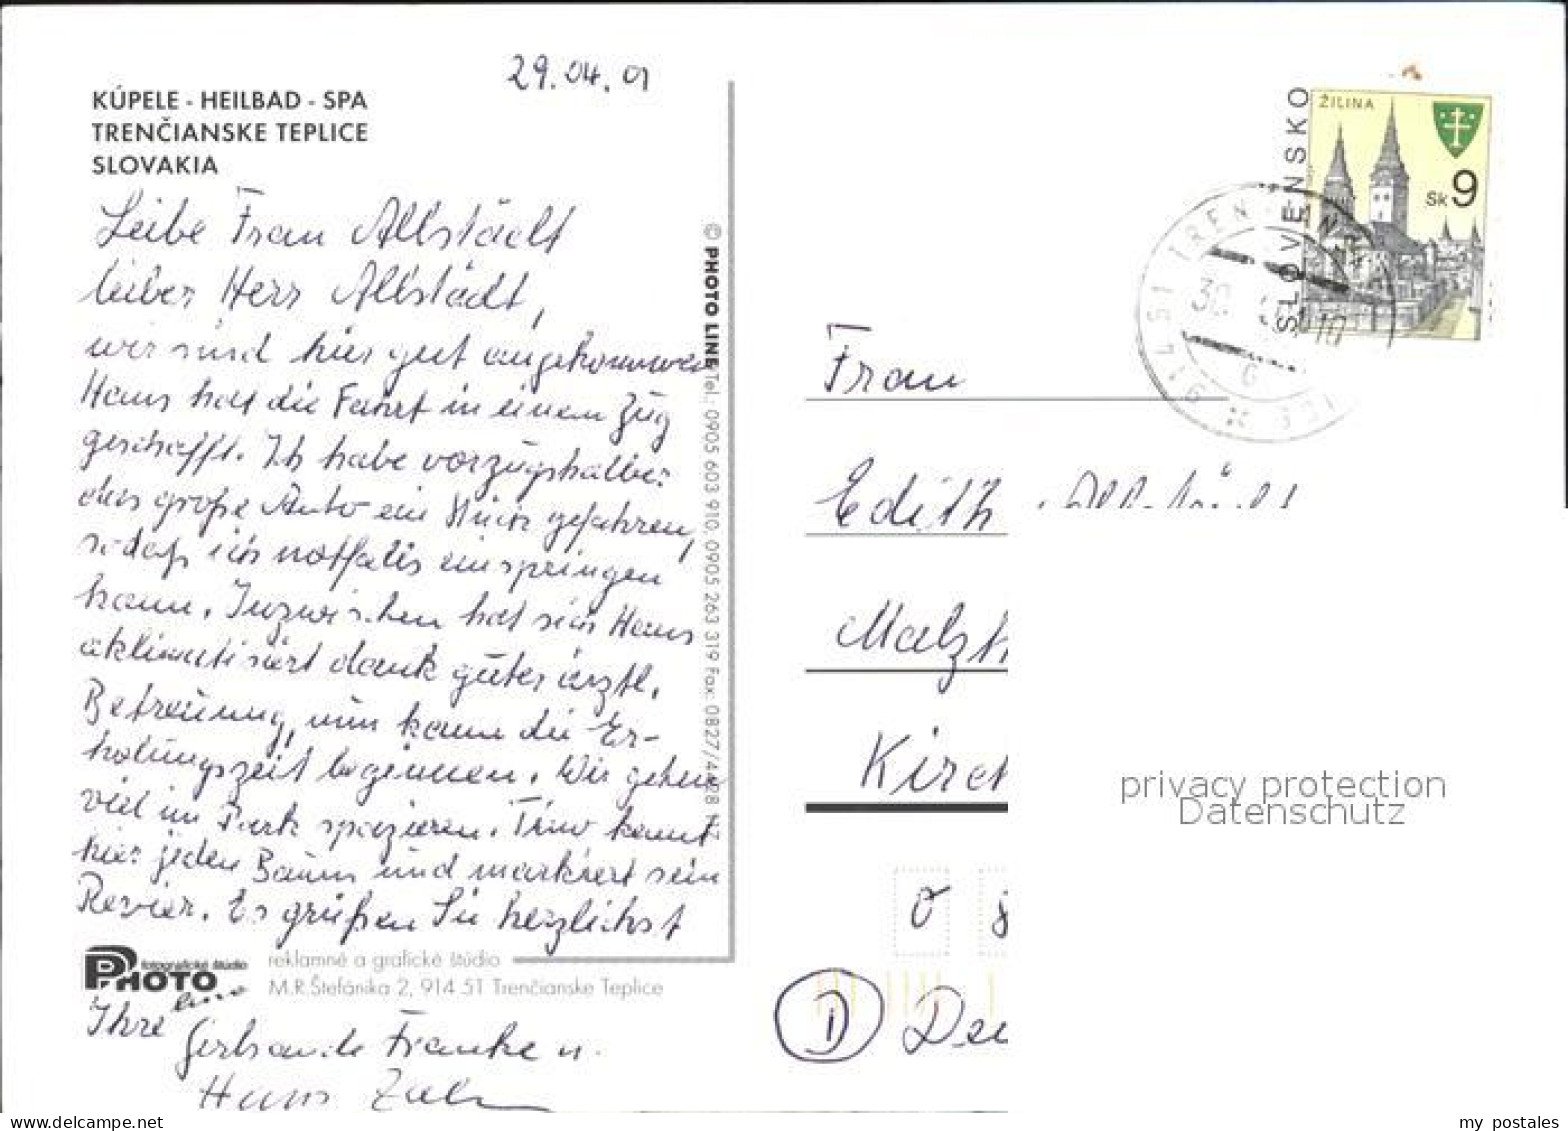 29.04.01
KÚPELE - HEILBAD - SPA
TRENČIANSKE TEPLICE
SLOVAKIA
Leibe Frau Albstädt
lieber Herr Albstädt,
wir sind hier gut angekommen
Hans hat die Fahrt in einem Zug
geschafft. Ich habe vorzugshalber
das große Auto ein Stück gefahren,
sodaß ich notfalls einspringen
kann. Inzwischen hat sich Hans
aklimatisiert dank guter ärztl.
Betreuung, nun kann die Er-
holungszeit beginnen. Wir gehen
viel im Park spazieren. Timo kennt
hier jeden Baum und markiert sein
Revier. Es grüßen Sie herzlichst
Ihre
Gerlinde Franke u.
Hans
PHOTO line
fotografické štúdio
reklamné a grafické štúdio
M.R.Štefánika 2, 914 51 Trenčianske Teplice
© PHOTO LINE Tel.: 0905 603 910, 0905 263 319 Fax: 0827/4428
SLOVENSKO
ŽILINA
Sk 9
914 51 TREN
30
10
G
Frau
Edith Albstädt
Malzh
Kirch
0 8
D Deu
privacy protection
Datenschutz
delcampe.net
my_postales